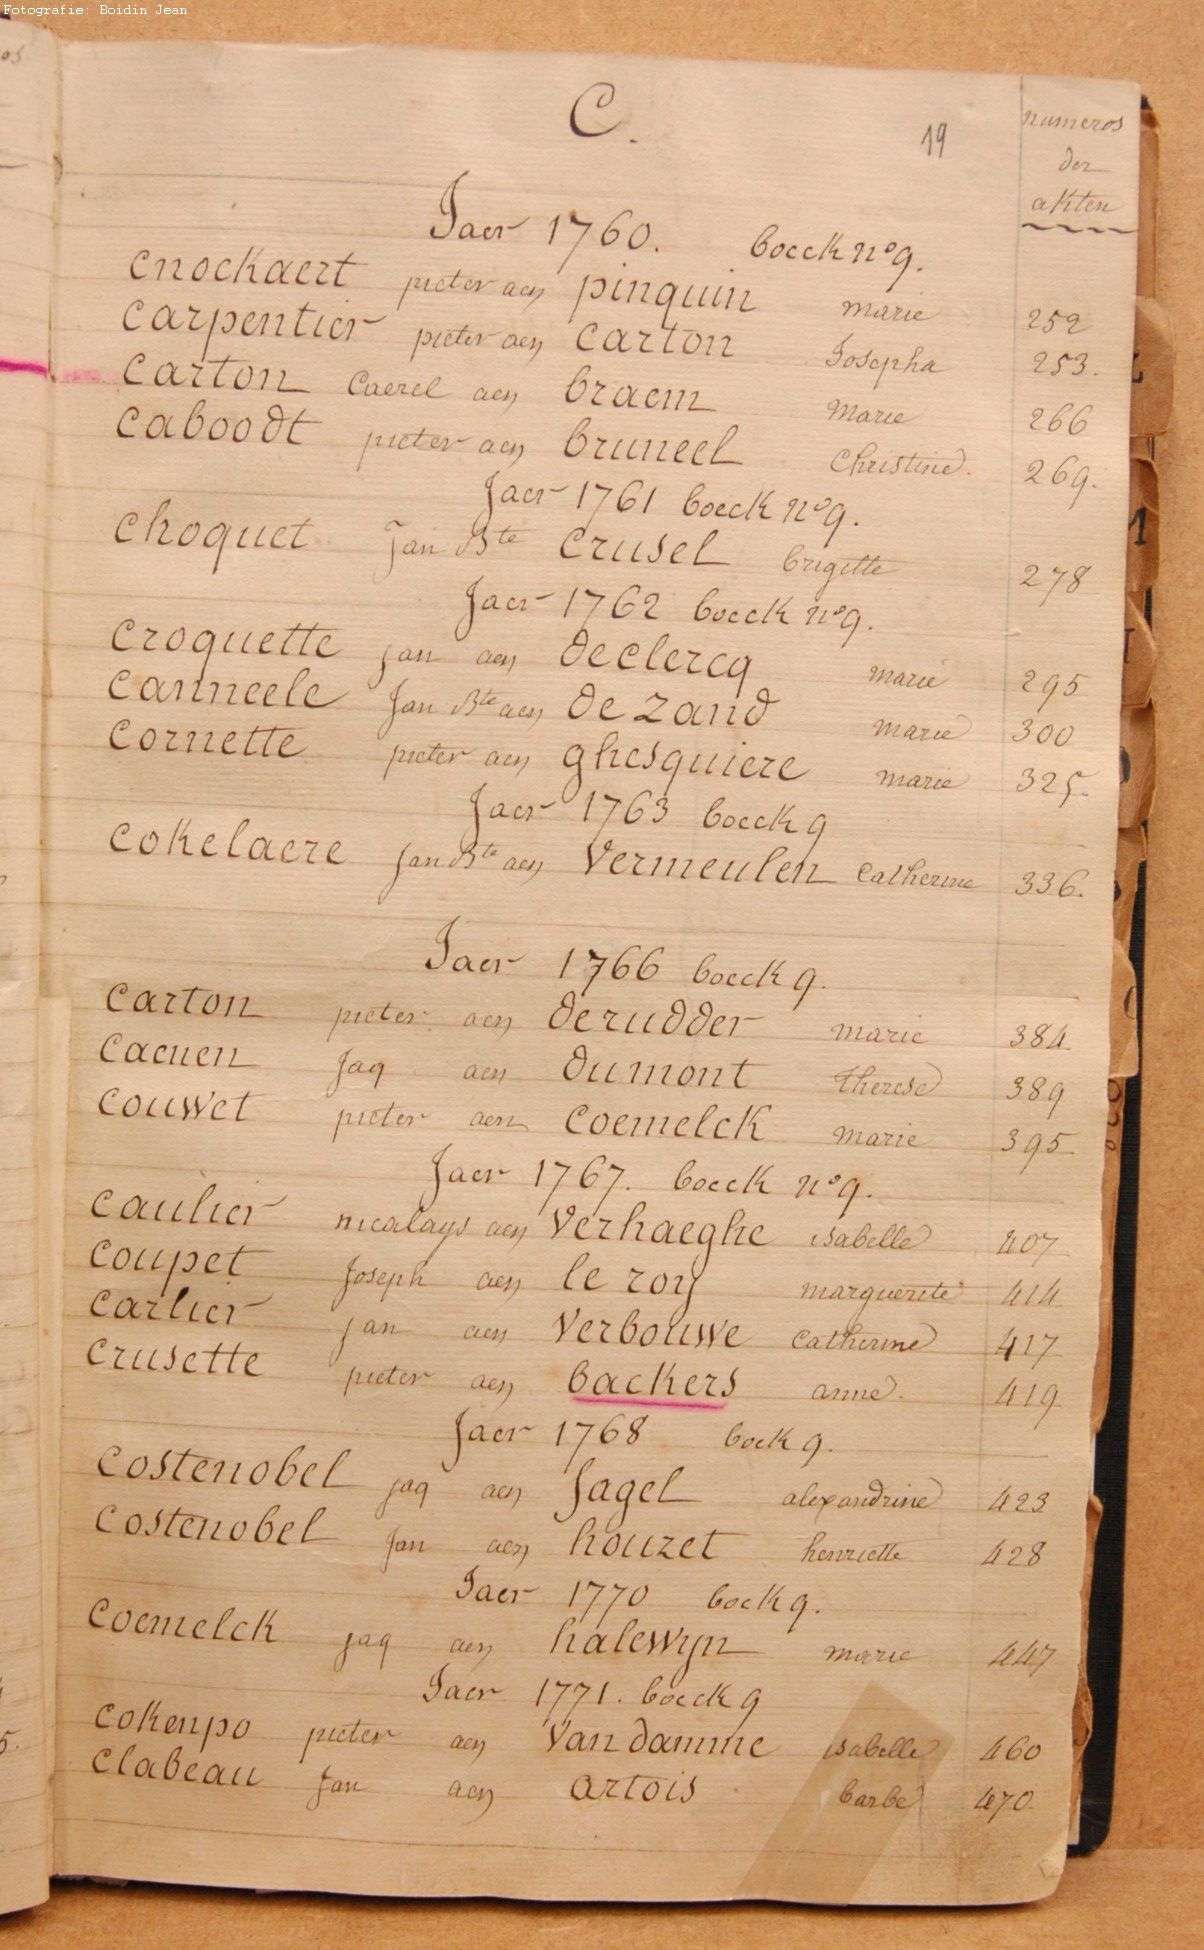 Fotografie: Boidin Jean
C.
19
numeros
der
akten
Jaer 1760. boeck nº 9.
cnockaert pieter aen pinquin marie 252
carpentier pieter aen carton Josepha 253.
carton Caerel aen braem marie 266
caboodt pieter aen bruneel christine. 269.
Jaer 1761 boeck nº 9.
choquet Jan Bte crusel brigitte 278
Jaer 1762 boeck nº 9.
croquette jan aen declercq marie 295
canneele Jan Bte aen de zand marie 300
cornette pieter aen ghesquiere marie 325.
Jaer 1763 boeck 9
cokelaere Jan Bte aen Vermeulen catherine 336.
Jaer 1766 boeck 9.
carton pieter aen derudder marie 384
caenen Jaq aen dumont therese 389
couwet pieter aen coemelck marie 395
Jaer 1767. boeck nº 9.
caulier nicalays aen Verhaeghe isabelle 407
coupet Joseph aen le roy marguerite 414
carlier jan aen Verbouwe catherine 417
crusette pieter aen backers anne. 419
Jaer 1768 boek 9.
costenobel jaq aen fagel alexandrine 423
costenobel Jan aen houzet henriette 428
Jaer 1770 boek 9.
coemelck jaq aen halewyn marie 447
Jaer 1771. boeck 9
cokenpo pieter aen Van damme isabelle 460
clabeau Jan aen artois barbe 470